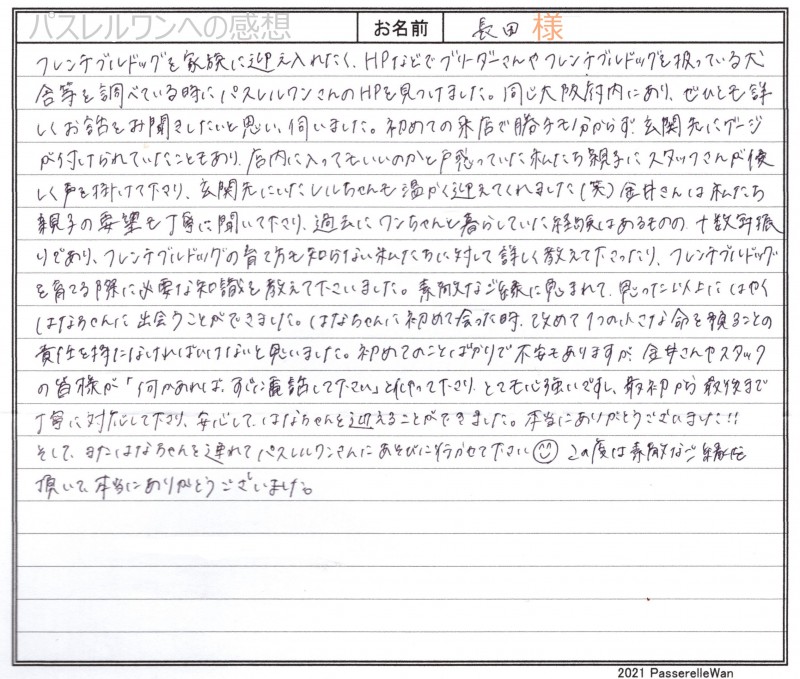 パスレルワンへの感想 お名前 長田 様
フレンチブルドッグを家族に迎え入れたく、HPなどでブリーダーさんやフレンチブルドッグを扱っている犬
舎等を調べている時にパスレルワンさんのHPを見つけました。同じ大阪府内にあり、ぜひとも詳
しくお話をお聞きしたいと思い、伺いました。初めての来店で勝手も分からず、玄関先にゲージ
が付けられていたこともあり、店内に入ってもいいのかと戸惑っていた私たち親子にスタッフさんが優
しく声を掛けて下さり、玄関先にいたレルちゃんも温かく迎えてくれました(笑) 金井さんは私たち
親子の要望も丁寧に聞いて下さり、過去にワンちゃんと暮らしていた経験はあるものの、十数年振
りであり、フレンチブルドッグの育て方も知らない私たちに対して詳しく教えて下さったり、フレンチブルドッグ
を育てる際に必要な知識を教えて下さいました。素敵なご縁に恵まれて、思った以上にはやく
はなちゃんに出会うことができました。はなちゃんに初めて会った時、改めて1つの小さな命を預ることの
責任を持たなければいけないと思いました。初めてのことばかりで不安もありますが、金井さんやスタッフ
の皆様が「何かあれば、すぐに電話して下さい」と仰って下さり、とても心強いですし、最初から最後まで
丁寧に対応して下さり、安心して、はなちゃんを迎えることができました。本当にありがとうございました!!
そして、またはなちゃんを連れてパスレルワンさんにあそびに行かせて下さい😊 この度は素敵なご縁を
頂いて、本当にありがとうございました。
2021 PasserelleWan